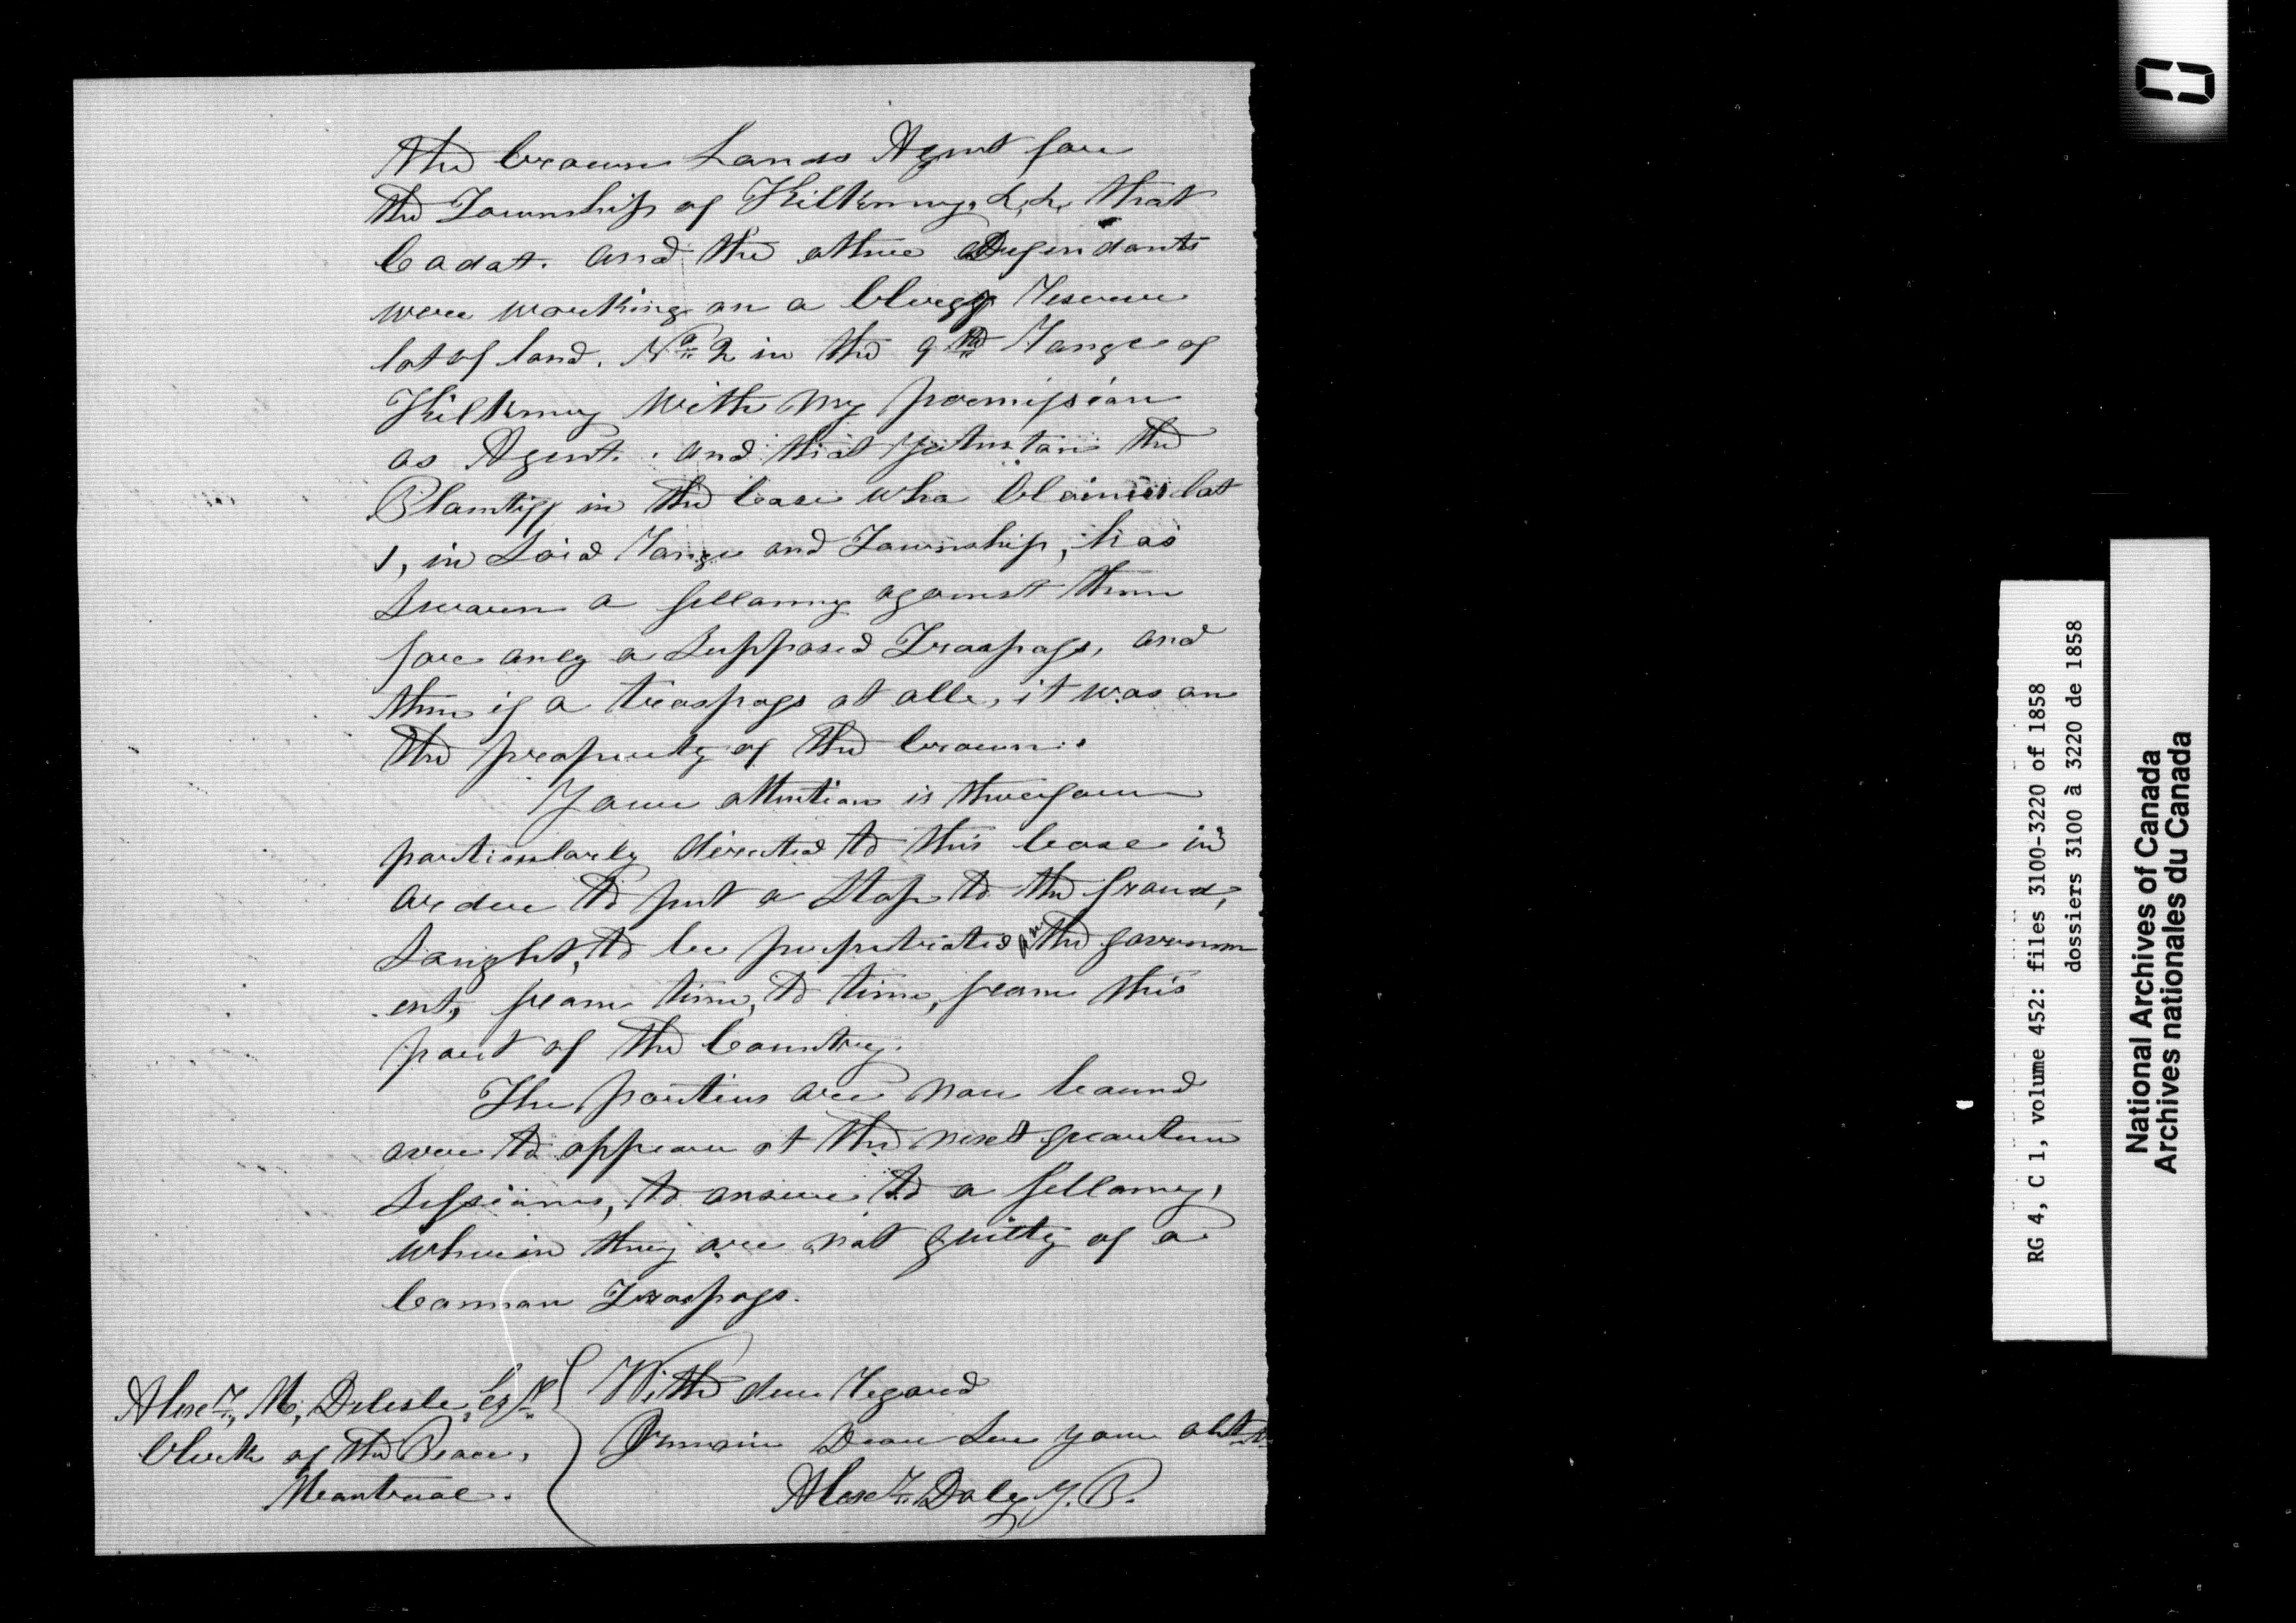 the Crown Lands Agent for
the Township of Kilkenny, &,&, that
Cadat. and the other Defendants
were working on a Clergy Reserve
lot of land. No 2 in the 9th Range of
Kilkenny with my permission
as Agent. and that the
Plantiff in the Case who Claims lot
1, in Said Range and Township, has
Sworn a fellonny against them
for only a Supposed Traspass, and
then if a traspass at all, it was on
the property of the Crown.
Your attention is therefore
particularly directed to this Case in
order to put a Stop to the fraud,
Saught, to be perpetrated on the governm
ent, from time, to time, from this
part of the Country.
The parties are now bound
over to appear at the next quarter
Sessions, to answer to a fellonny,
wherein they are not guilty of a
Common Traspass.
With due Regard
Remain Dear Sir your obt
Alexr. Daly J.P.
Alexr, M, Delisle, Esqr.
Clerk of the Peace,
Montreal.
RG 4, C 1, volume 452: files 3100-3220 of 1858
dossiers 3100 à 3220 de 1858
National Archives of Canada
Archives nationales du Canada